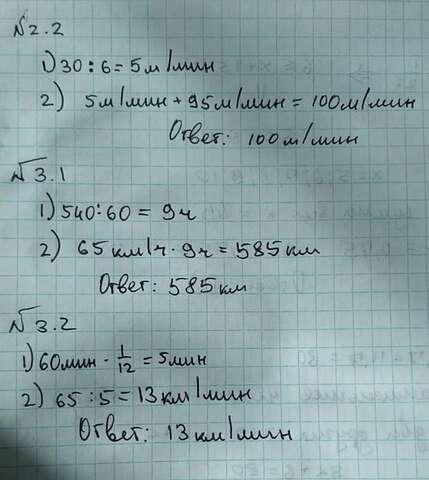 №2.2
1) 30 : 6 = 5 м/мин
2) 5 м/мин + 95 м/мин = 100 м/мин
Ответ: 100 м/мин
№3.1
1) 540:60 = 9 ч
2) 65 км/ч · 9 ч = 585 км
Ответ: 585 км
№3.2
1) 60 мин · 1/12 = 5 мин
2) 65 : 5 = 13 км/мин
Ответ: 13 км/мин